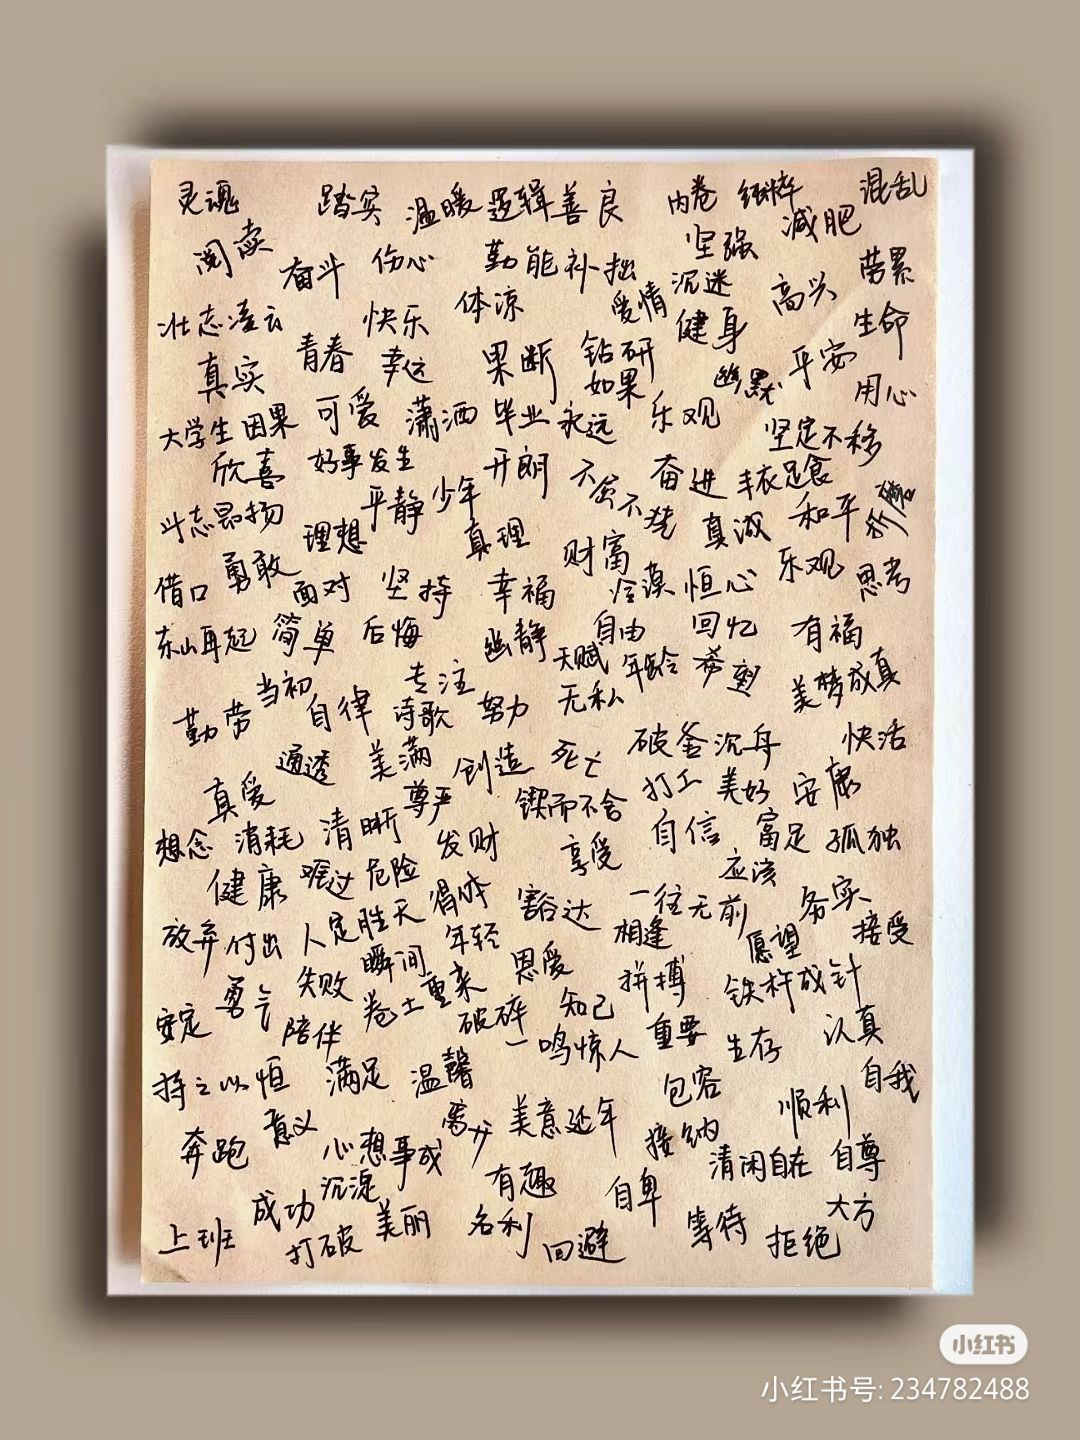 灵魂 踏实 温暖 逻辑 善良 内卷 混乱
阅读 奋斗 伤心 勤能补拙 坚强 减肥
壮志凌云 快乐 体凉 爱情 沉迷 高兴 劳累
真实 青春 幸运 果断 钻研 健身 生命
如果 幽默 平安 用心
大学生 因果 可爱 潇洒 毕业 永远 乐观 坚定不移
欣喜 好事发生 开朗 不屈不挠 奋进 丰衣足食
斗志昂扬 理想 平静 少年 真理 财富 真诚 和平 折磨
借口 勇敢 面对 坚持 幸福 冷漠 恒心 乐观 思考
东山再起 简单 后悔 幽静 自由 回忆 有福
当初 专注 天赋 年龄 希望 美梦成真
勤劳 自律 诗歌 努力 无私
通透 美满 创造 死亡 破釜沉舟 快活
真爱 尊严 锲而不舍 打工 美好 安康
想念 消耗 清晰 发财 享受 自信 富足 孤独
健康 难过 危险 得体 豁达 一往无前 应该 务实
放弃 付出 人定胜天 年轻 相逢 愿望 接受
勇气 失败 瞬间 卷土重来 恩爱 拼搏 铁杵成针
安定 陪伴 破碎 知己 一鸣惊人 重要 生存 认真
持之以恒 满足 温馨 包容 自我
奔跑 意义 心想事成 离开 美意延年 接纳 顺利
沉淀 有趣 自卑 清闲自在 自尊
上班 成功 打破 美丽 名利 回避 等待 拒绝 大方
小红书
小红书号: 234782488